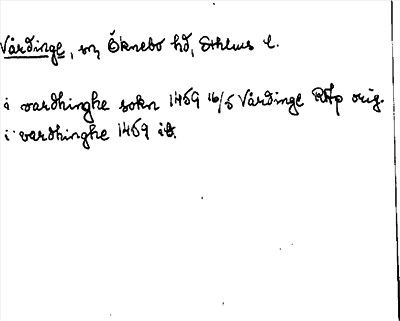 Vårdinge, sn, Öknebo hd, Sthlms l.
i vardhinghe sokn 1459 16/5 Vårdinge RAp orig.
i vardhinghe 1459 ib.